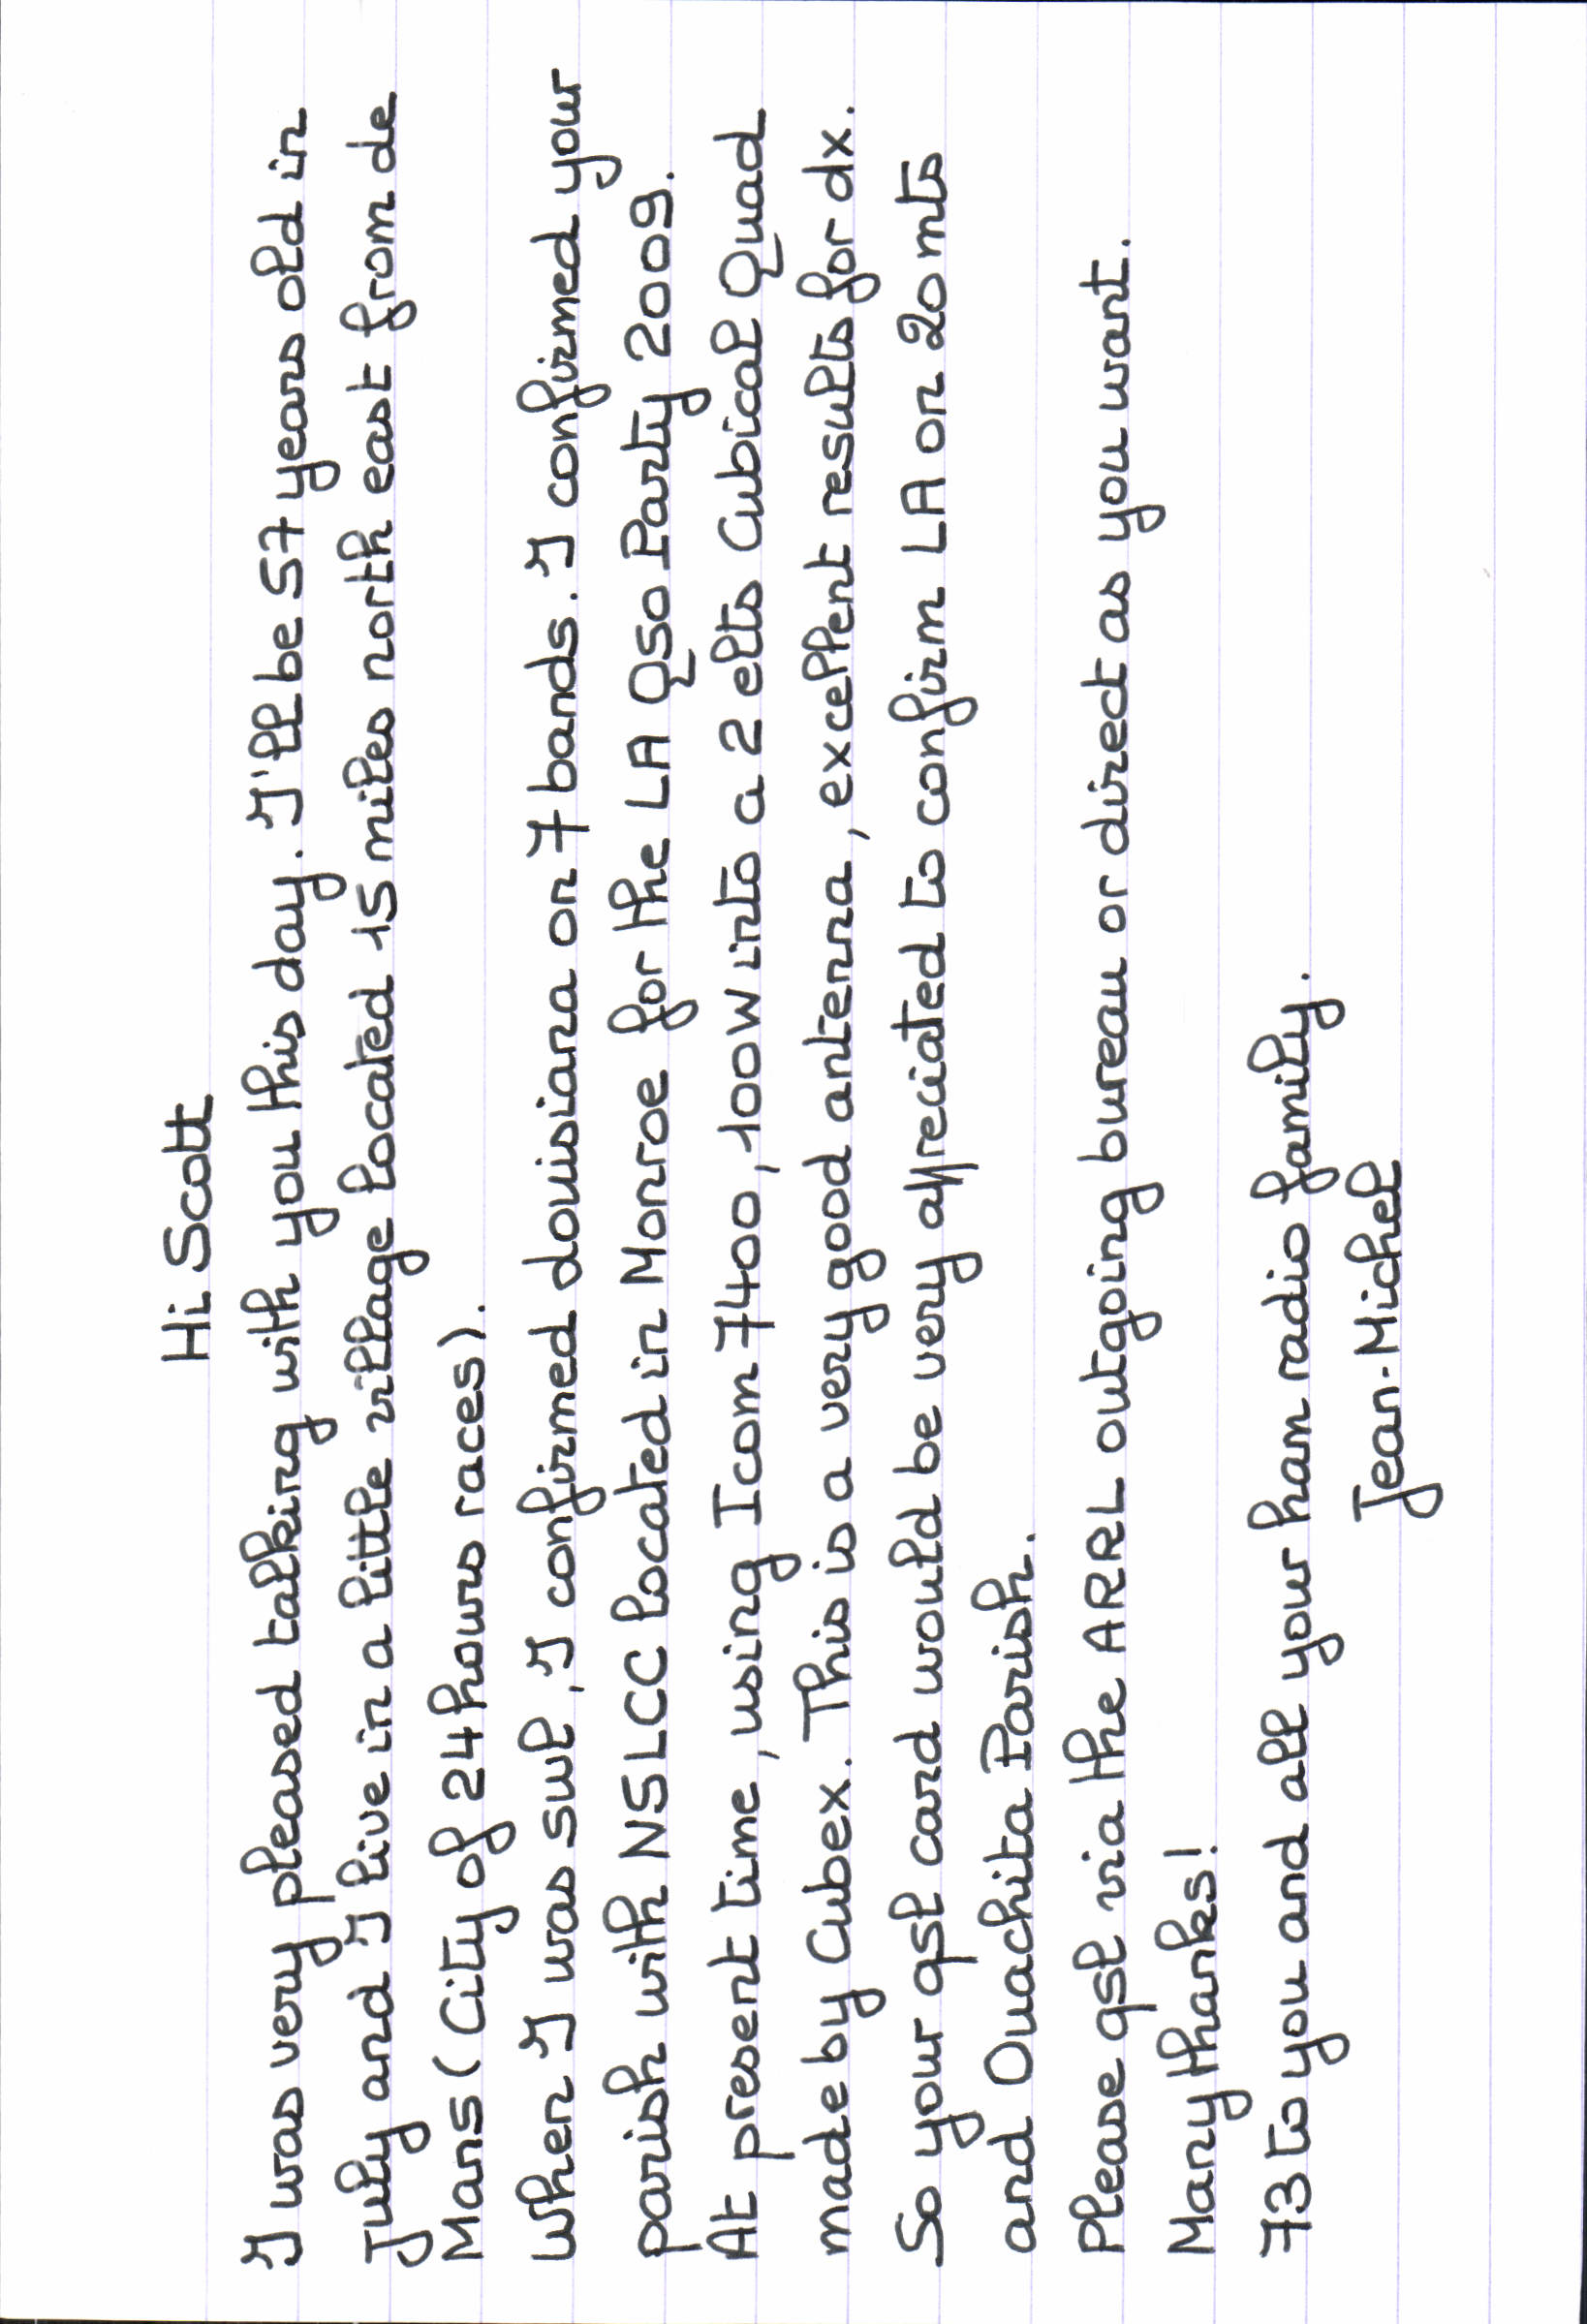 Hi Scott
I was very pleased talking with you this day. I'll be 57 years old in
July and I live in a little village located 15 miles north east from de
Mans (City of 24 hours races).
When I was swl, I confirmed Louisiana on 7 bands. I confirmed your
parish with N5LCC located in Monroe for the LA Qso Party 2009.
At present time, using Icom 7400, 100W into a 2 elts Cubical Quad
made by Cubex. This is a very good antenna, excellent results for dx.
So your qsl card would be very appreciated to confirm LA on 20 mts
and Ouachita Parish.
Please qsl via the ARRL outgoing bureau or direct as you want.
Many thanks!
73 to you and all your ham radio family.
Jean-Michel